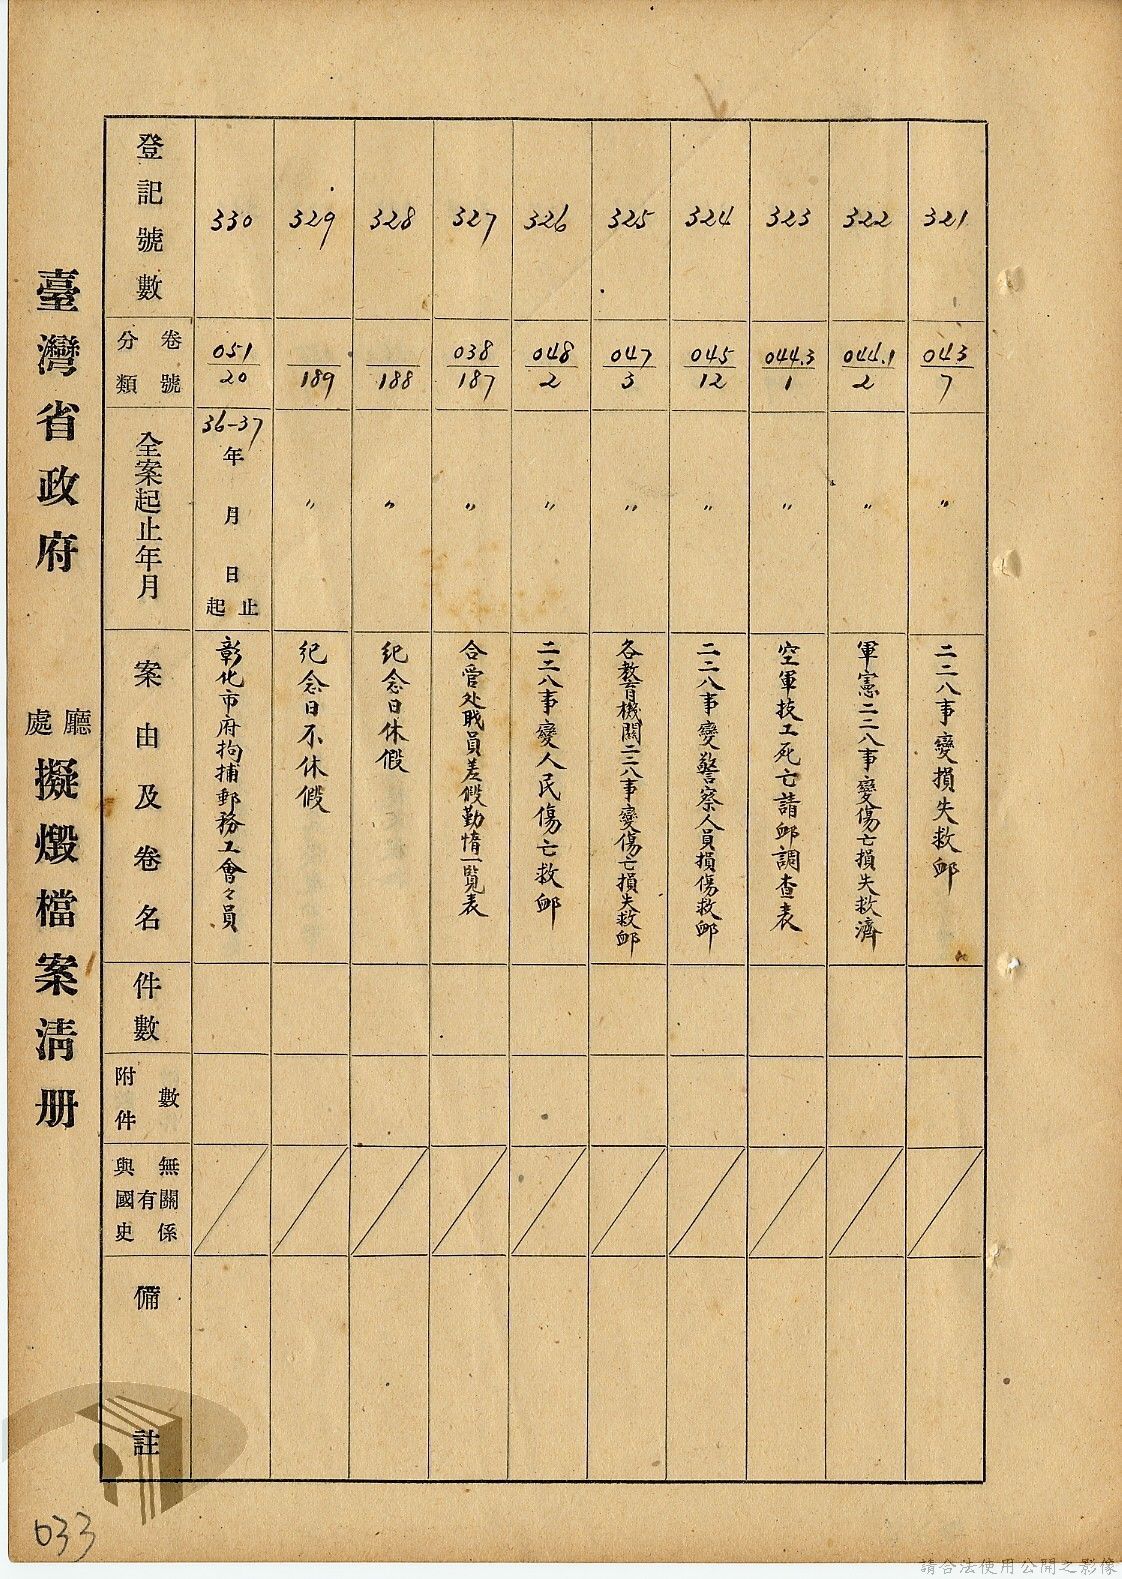 臺灣省政府 廳處 擬燬檔案清册
登記號數
卷號
分類
全案起止年月
案由及卷名
件數
附件數
與國史有無關係
備註
330
051/20
36-37年 月 日起止
彰化市府拘捕郵務工會々員
329
189
〃
紀念日不休假
328
188
〃
紀念日休假
327
038/187
〃
合管处职員差假勤惰一覧表
326
048/2
〃
二二八事變人民傷亡救卹
325
047/3
〃
各教育機關二二八事變傷亡損失救卹
324
045/12
〃
二二八事變警察人員損傷救卹
323
044.3/1
〃
空軍技工死亡請卹調查表
322
044.1/2
〃
軍憲二二八事變傷亡損失救濟
321
043/7
〃
二二八事變損失救卹
033
請合法使用公開之影像